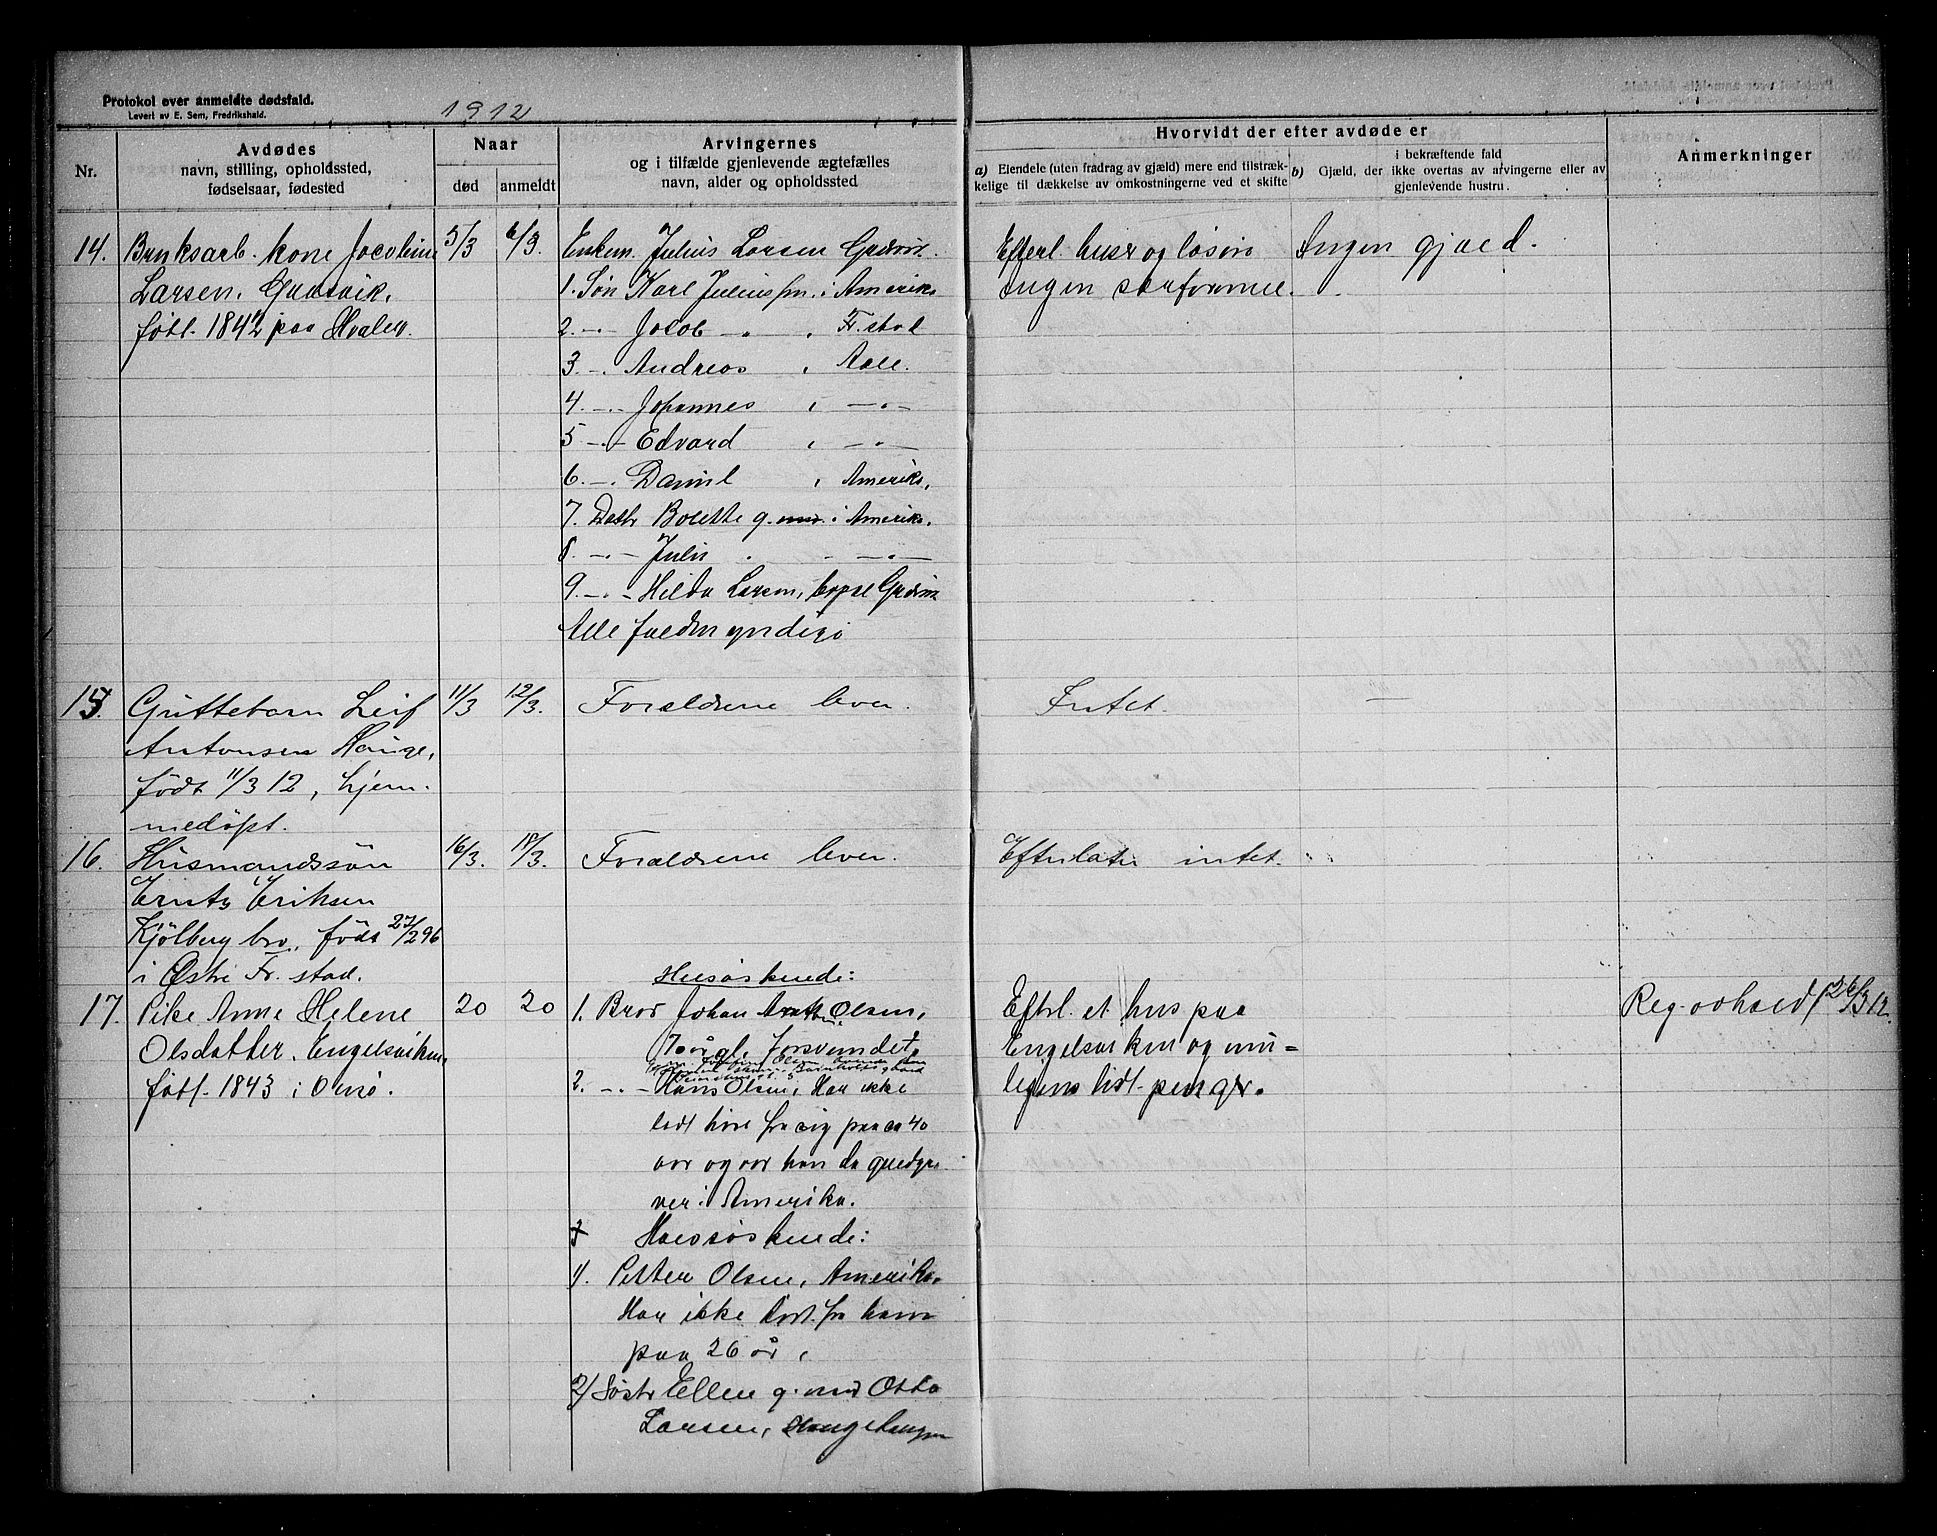 Protokol over anmeldte dødsfald.
Levert av E. Sem, Fredrikshald.
1912
Nr.
Avdødes
navn, stilling, opholdssted,
fødselsaar, fødested
Naar
død
anmeldt
Arvingernes
og i tilfælde gjenlevende ægtefælles
navn, alder og opholdssted
Hvorvidt der efter avdøde er
a) Eiendele (uten fradrag av gjæld) mere end tilstræk-
kelige til dækkelse av omkostningerne ved et skifte
i bekræftende fald
b) Gjæld, der ikke overtas av arvingerne eller av
gjenlevende hustru.
Anmerkninger
14. Bruksarb. kone Jacobine
Larsen. Græsvik.
født. 1842 paa Hvaler.
5/3
6/3.
Enkem. Julius Larsen Græsvik.
1. Søn Karl Juliussen. i Amerika
2. -"- Jacob " , Fr.stad
3. -"- Andreas , Aale.
4. -"- Johannes , -"-
5 -"- Edvard , -"-
6. -"- Daniel , Amerika,
7. Dattr Bolette g. i Amerika.
8. -"- Julie " -"-
9. -"- Hilda Larsen, Græsvik
Alle fuldmyndige
Efterl. huser og løsøre
Ingen skarformue.
Ingen gjæld.
15. Guttebarn Leif
Antonsen Hauge,
født 11/3 12, hjem-
medøpt.
11/3
12/3.
Forældrene lever.
Intet.
—
16. Husmandssøn
Erntz Eriksen
Kjølberg bro. født 27/2 96
i Østre Fr. stad.
16/3.
18/3.
Forældrene lever.
Efterlater intet.
17. Pike Anne Helene
Olsdatter. Engelsviken,
født. 1843 i Onsø.
20
20
Helsøskende:
1. Bror Johan Olsen,
70 år gl. forsvundet,
2. -"- Hans Olsen, Har ikke
ladt høre fra sig paa ca 40
aar og var han da guldgra-
ver i Amerika.
Halvsøskende:
1). Petter Olsen, Amerika.
Har ikke hørt fra ham
paa 26 år.
2) Søstr Ellen g. med Otto
Larsen,
Efterl. et hus paa
Engelsviken og mu=
ligens lidt penger.
Reg. avholdt 26/3 12.